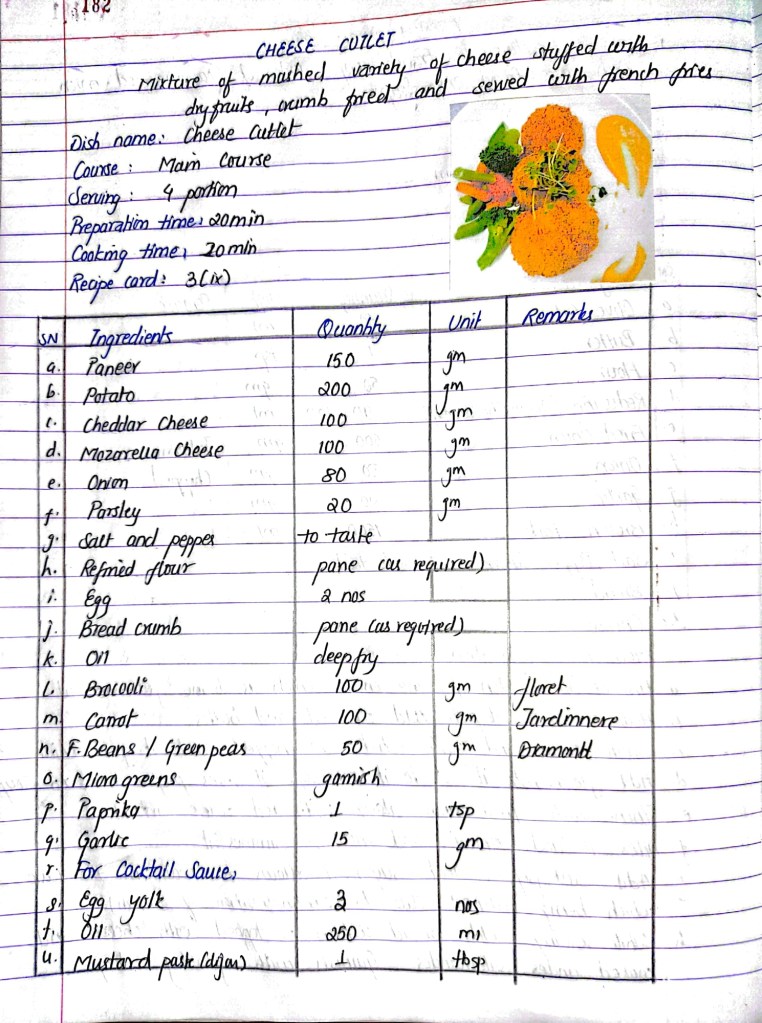 182
CHEESE CUTLET
Mixture of mashed variety of cheese stuffed with
dryfruits, crumb fried and served with french fries
Dish name: Cheese Cutlet
Course : Main Course
Serving : 4 portion
Preparation time: 20min
Cooking time: 20min
Recipe card: 3(ix)
SN Ingredients Quantity Unit Remarks
a. Paneer 150 gm
b. Potato 200 gm
c. Cheddar Cheese 100 gm
d. Mozarella Cheese 100 gm
e. Onion 80 gm
f. Parsley 20 gm
g. Salt and pepper to taste
h. Refined flour pane (as required)
i. Egg 2 nos
j. Bread crumb pane (as required)
k. Oil deep fry
l. Brocooli 100 gm floret
m. Carrot 100 gm Jardinnere
n. F. Beans / Green peas 50 gm Diamond
o. Micro greens garnish
p. Paprika 1 tsp
q. Garlic 15 gm
r. For Cocktail Sauce,
s. Egg yolk 3 nos
t. Oil 250 ml
u. Mustard paste (dijon) 1 tbsp